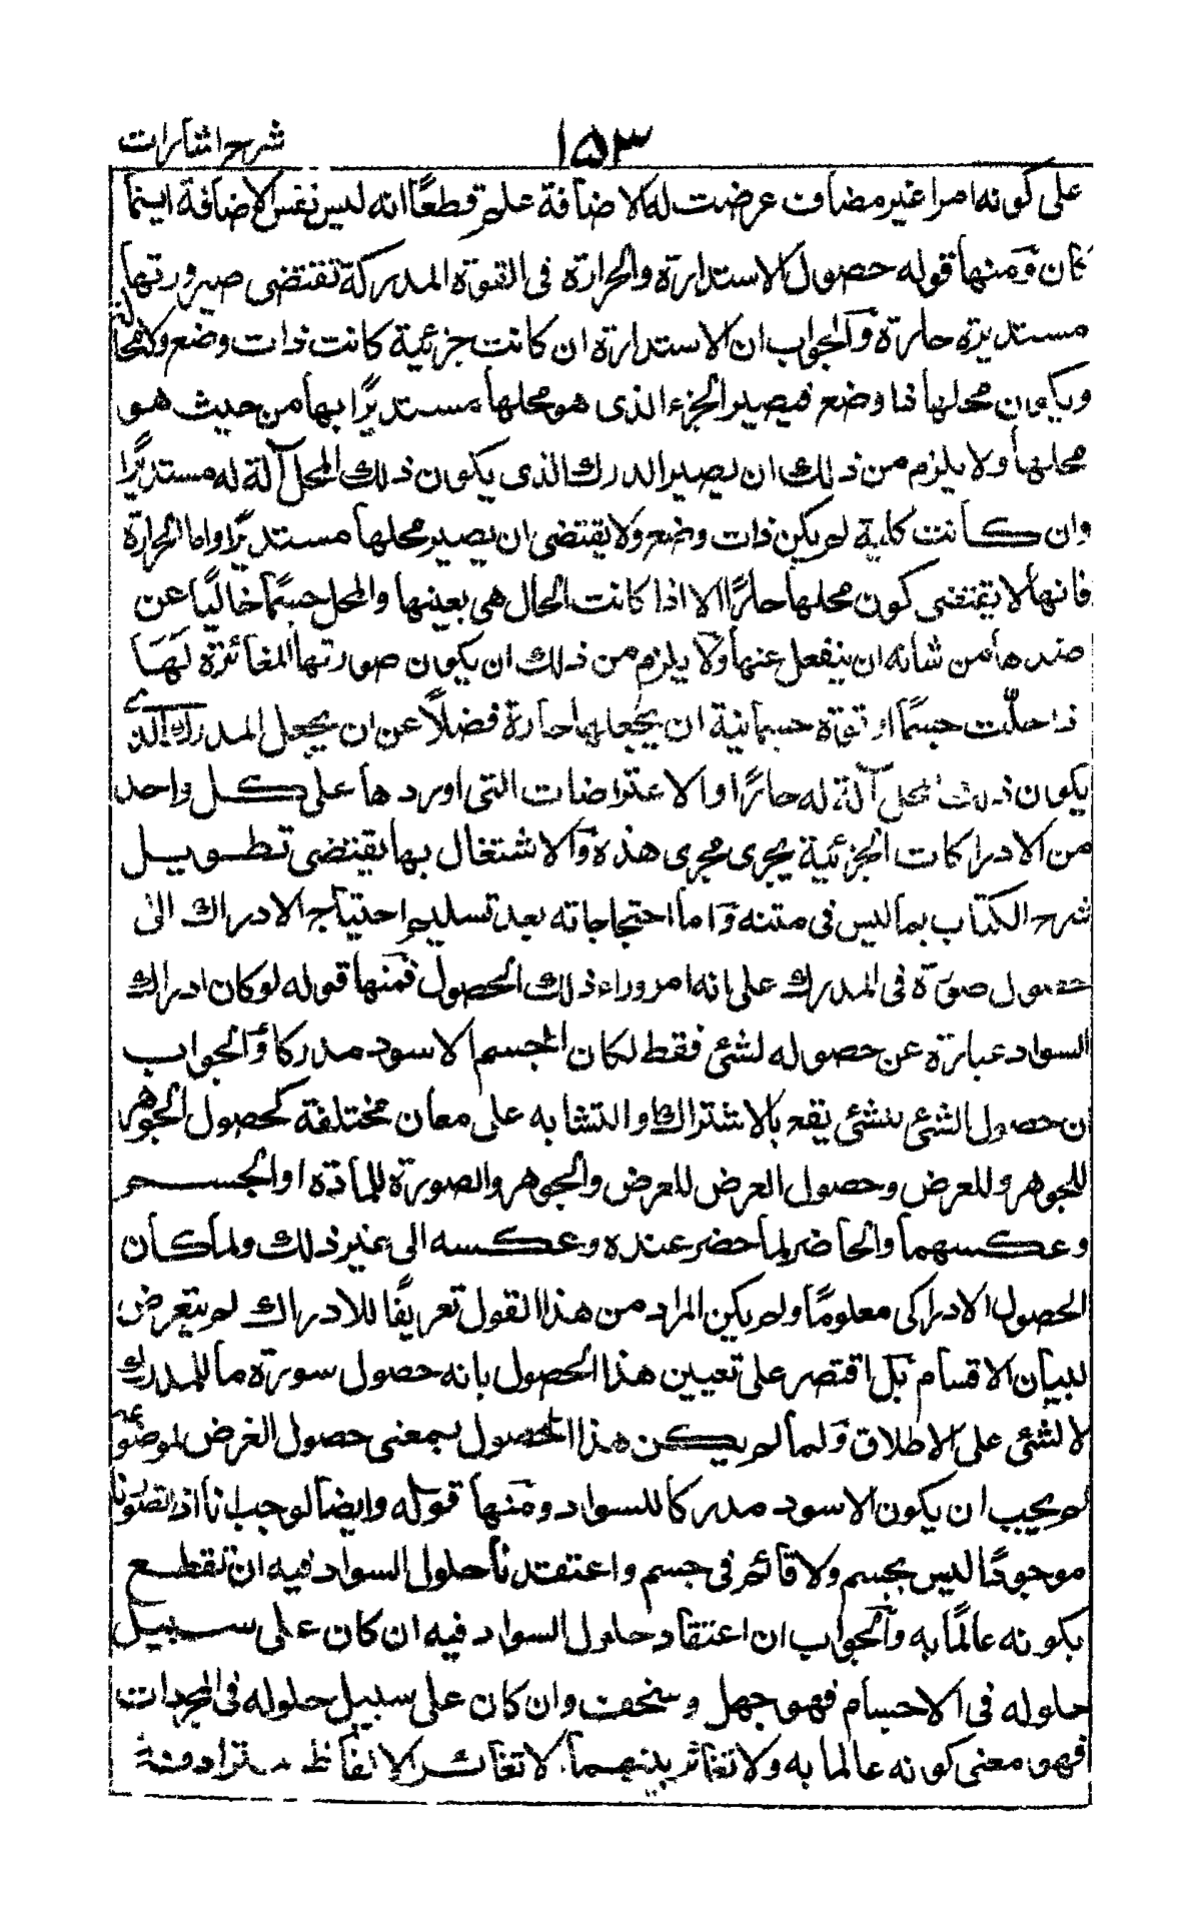 شرح اشارات
١٥٣
على كونه امرا غير مضاف عرضت له الاضافة علم قطعًا انه ليس نفس الاضافة اينما
كان ومنها قوله حصول الاستدارة والحرارة فى القوة المدركة تقتضى صيرورتها
مستديرة حارة والجواب ان الاستدارة ان كانت جزئية كانت ذات وضع ولا محالة
ويكون محلها ذا وضع فيصير الجزء الذى هو محلها مستديرًا بها من حيث هو
محلها ولا يلزم من ذلك ان يصير المدرك الذى يكون ذلك المحل آلة له مستديرًا
وان كانت كلية لم يكن ذات وضع ولا يقتضى ان يصير محلها مستديرًا واما الحرارة
فانها لا يقتضى كون محلها حارًا الا اذا كانت الحال هى بعينها والمحل جسمًا خاليًا عن
ضدها من شانه ان ينفعل عنها ولا يلزم من ذلك ان يكون صورتها المغائرة لَهَا
اذا حلّت جسمًا او قوة جسمانية ان يجعلها حارة فضلًا عن ان يجعل المدرك الذى
يكون ذلك المحل آلة له حارًا والاعتراضات التى اوردها على كل واحد
من الادراكات الجزئية يجرى مجرى هذه والاشتغال بها يقتضى تطويل
شرح الكتاب بما ليس فى متنه واما احتجاجاته بعد تسليم احتياج الادراك الى
حصول صورة فى المدرك على انه امر وراء ذلك الحصول فمنها قوله لو كان ادراك
السواد عبارة عن حصوله لشئ فقط لكان الجسم الاسود مدركا والجواب
ان حصول الشئ للشئ يقع بالاشتراك والتشابه على معان مختلفة كحصول الجوهر
للجوهر وللعرض وحصول العرض للعرض والجوهر والصورة للمادة او الجسم
وعكسهما والحاضر لما حضر عنده وعكسه الى غير ذلك ولما كان
الحصول الادراكى معلومًا ولم يكن المراد من هذا القول تعريفًا للادراك لم يتعرض
لبيان الاقسام بل اقتصر على تعيين هذا الحصول بانه حصول سورة ما للمدرك
لا لشئ على الاطلاق ولما لم يكن هذا الحصول بمعنى حصول العرض لموضوعه
لم يجب ان يكون الاسود مدركا للسواد ومنها قوله وايضا لوجب انا اذا تصورنا
موجودًا ليس بجسم ولا قائم فى جسم واعتقدنا حلول السواد فيه ان نقطع
بكونه عالمًا به والجواب ان اعتقاد حلول السواد فيه ان كان على سبيل
حلوله فى الاجسام فهو جهل وسخف وان كان على سبيل حلوله فى المجردات
فهو معنى كونه عالما به ولا تغائر بينهما الا تغائر الالفاظ مترادفة